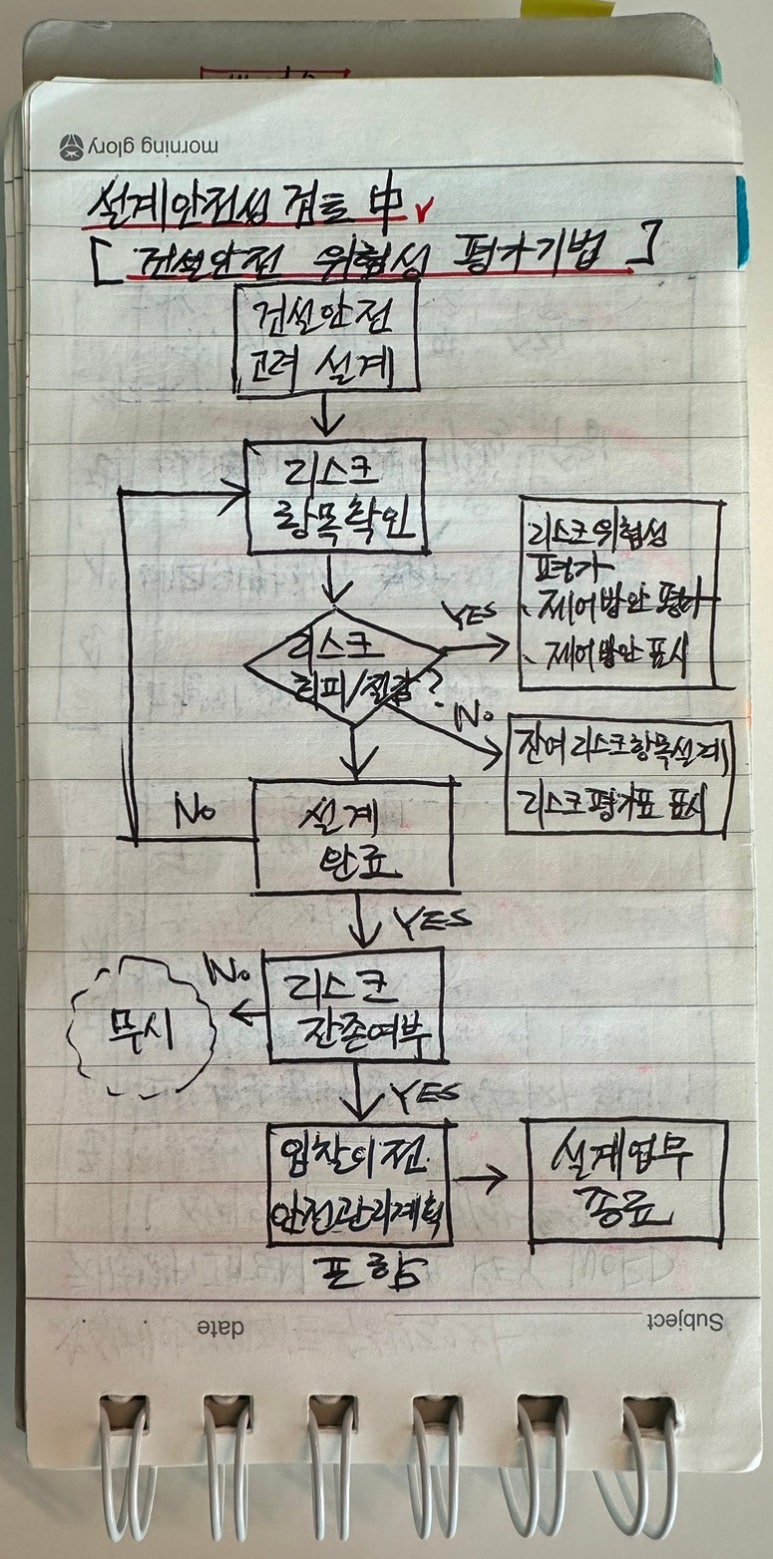 morning glory
설계안전성 검토 中
[ 건설안전 위험성 평가기법 ]
건설안전
고려 설계
리스크
항목확인
리스크위험성
평가
、제어방안 평가
、제어방안 표시
YES
리스크
회피/전감?
No
잔여리스크항목설계
리스크평가표 표시
No
설계
완료
YES
No
리스크
잔존여부
무시
YES
입찰이전
안전관리계획
포함
설계업무
종료
Subject
date